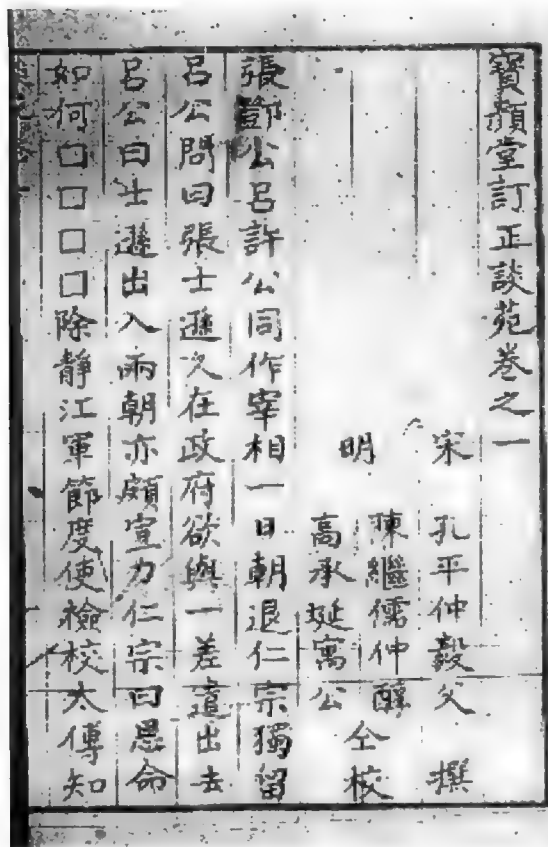 寶顏堂訂正談苑卷之一
宋 孔平仲毅父 撰
明 陳繼儒仲醇
高承埏寓公 仝校
張鄧公呂許公同作宰相一日朝退仁宗獨留
呂公問曰張士遜久在政府欲與一差遣出去
呂公曰士遜出入兩朝亦頗宣力仁宗曰恩命
如何口口口口除靜江軍節度使檢校太傅知